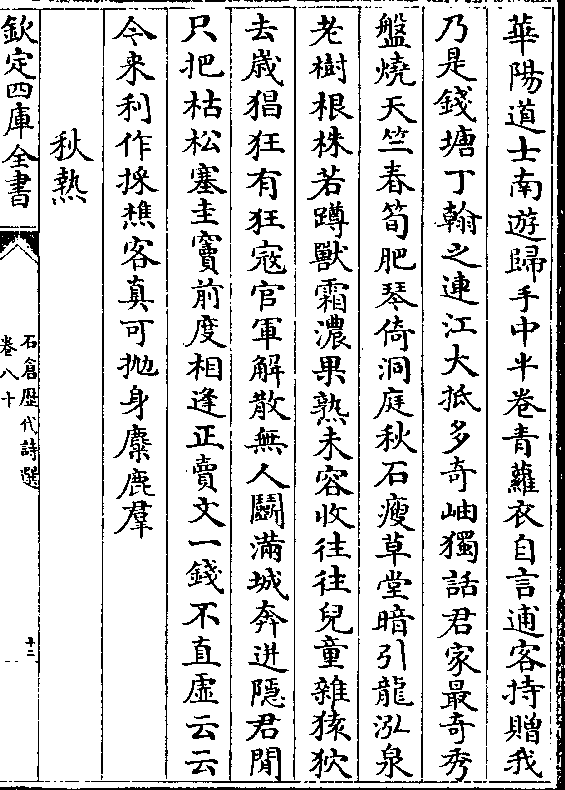 華陽道士南遊歸手中半卷青蘿衣自言逋客持贈我
乃是錢塘丁翰之連江大抵多奇岫獨話君家最奇秀
盤燒天竺春筍肥琴倚洞庭秋石瘦草堂暗引龍泓泉
老樹根株若蹲獸霜濃果熟未容收往往兒童雜猿狖
去歲猖狂有狂寇官軍解散無人鬭滿城奔迸隱君閒
只把枯松塞圭竇前度相逢正賣文一錢不直虛云云
今来利作採樵客真可抛身麋鹿羣
秋熱
欽定四庫全書
石倉歷代詩選
卷八十
十三